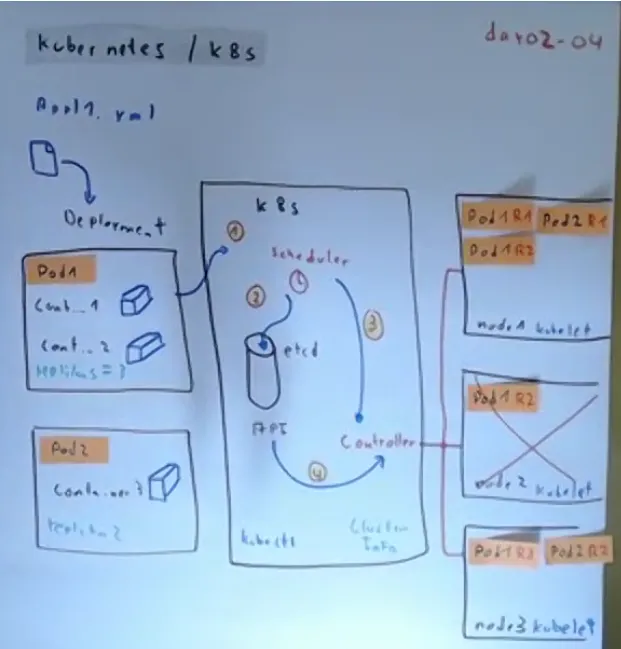 kubernetes / k8s
day02-04
App1. yml
Deployment
Pod1
Cont... 1
Cont... 2
replikas = 3
Pod2
Container 3
k8s
1
Scheduler
2
3
etcd
API
Controller
4
kubectl
Cluster
Info
Pod1 R1
Pod2 R1
Pod1 R2
node1 kubelet
Pod1 R2
node2 kubelet
Pod1 R3
Pod2 R2
node3 kubelet